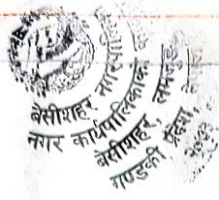 बेसीशहर नगरपालिका
नगर कार्यपालिकाको
बेसीशहर, लमजुङ
गण्डकी प्रदेश,